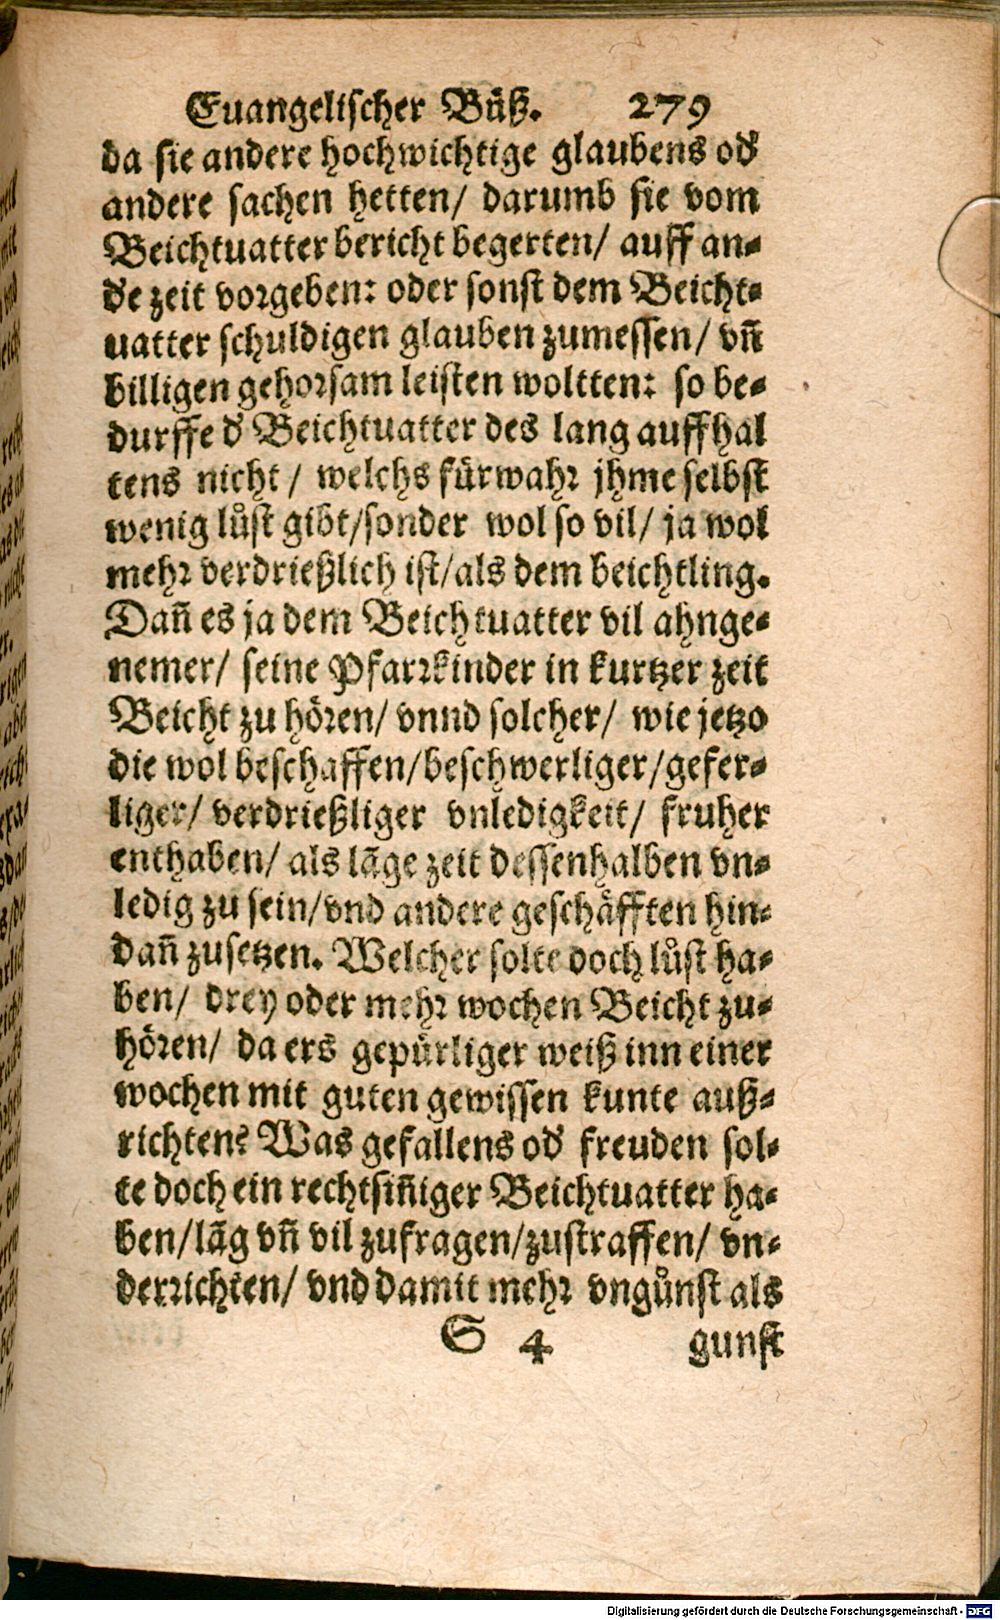 Euangelischer Bůß. 279
da sie andere hochwichtige glaubens od̕
andere sachen hetten/ darumb sie vom
Beichtuatter bericht begerten/ auff an⸗
d̕e zeit vorgeben: oder sonst dem Beicht⸗
uatter schuldigen glauben zumessen/ vñ
billigen gehorsam leisten woltten: so be⸗
durffe d̕ Beichtuatter des lang auffhal
tens nicht/ welchs fürwahr jhme selbst
wenig lůst gibt/sonder wol so vil/ ja wol
mehr verdrießlich ist/als dem beichtling.
Dañ es ja dem Beichtuatter vil ahnge⸗
nemer/ seine Pfarrkinder in kurtzer zeit
Beicht zu hören/ vnnd solcher/ wie jetzo
die wol beschaffen/beschwerliger/gefer⸗
liger/ verdrießliger vnledigkeit/ fruher
enthaben/ als lãge zeit dessenhalben vn⸗
ledig zu sein/vnd andere geschäfften hin⸗
dañ zusetzen. Welcher solte doch lůst ha⸗
ben/ drey oder mehr wochen Beicht zu⸗
hören/ da ers gepürliger weiß inn einer
wochen mit guten gewissen kunte auß⸗
richten? Was gefallens od̕ freuden sol⸗
te doch ein rechtsiñiger Beichtuatter ha⸗
ben/lãg vñ vil zufragen/zustraffen/ vn⸗
derrichten/ vnd damit mehr vngůnst als
S 4 gunst
Digitalisierung gefördert durch die Deutsche Forschungsgemeinschaft - DFG